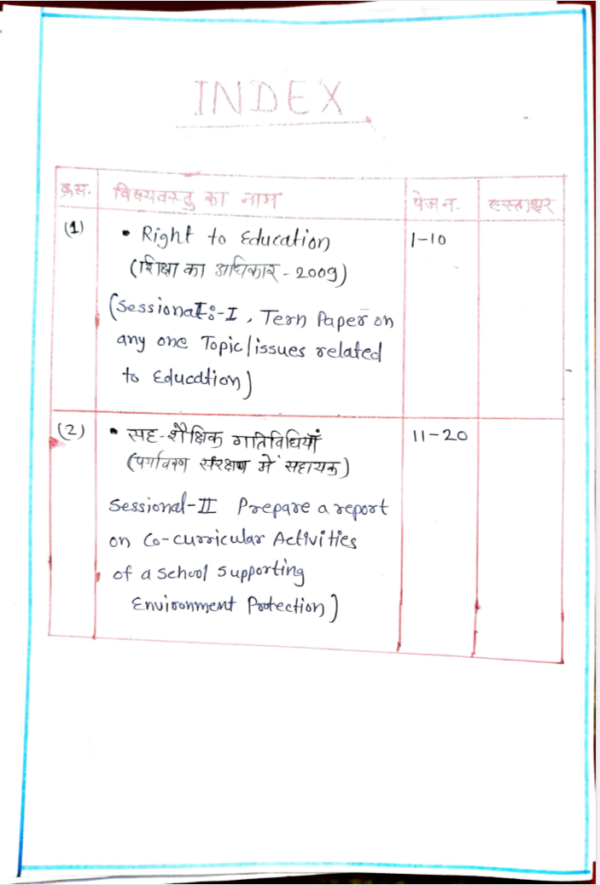 INDEX
क्रस. विषयवस्तु का नाम पेज न. हस्ताक्षर
(1) • Right to Education 1-10
(शिक्षा का अधिकार - 2009)
(Sessional:-I, Tern Paper on
any one Topic/issues related
to Education)
(2) • सह-शैक्षिक गतिविधियाँ 11-20
(पर्यावरण संरक्षण में सहायक)
Sessional-II Prepare a report
on Co-curricular Activities
of a School Supporting
Environment Protection)